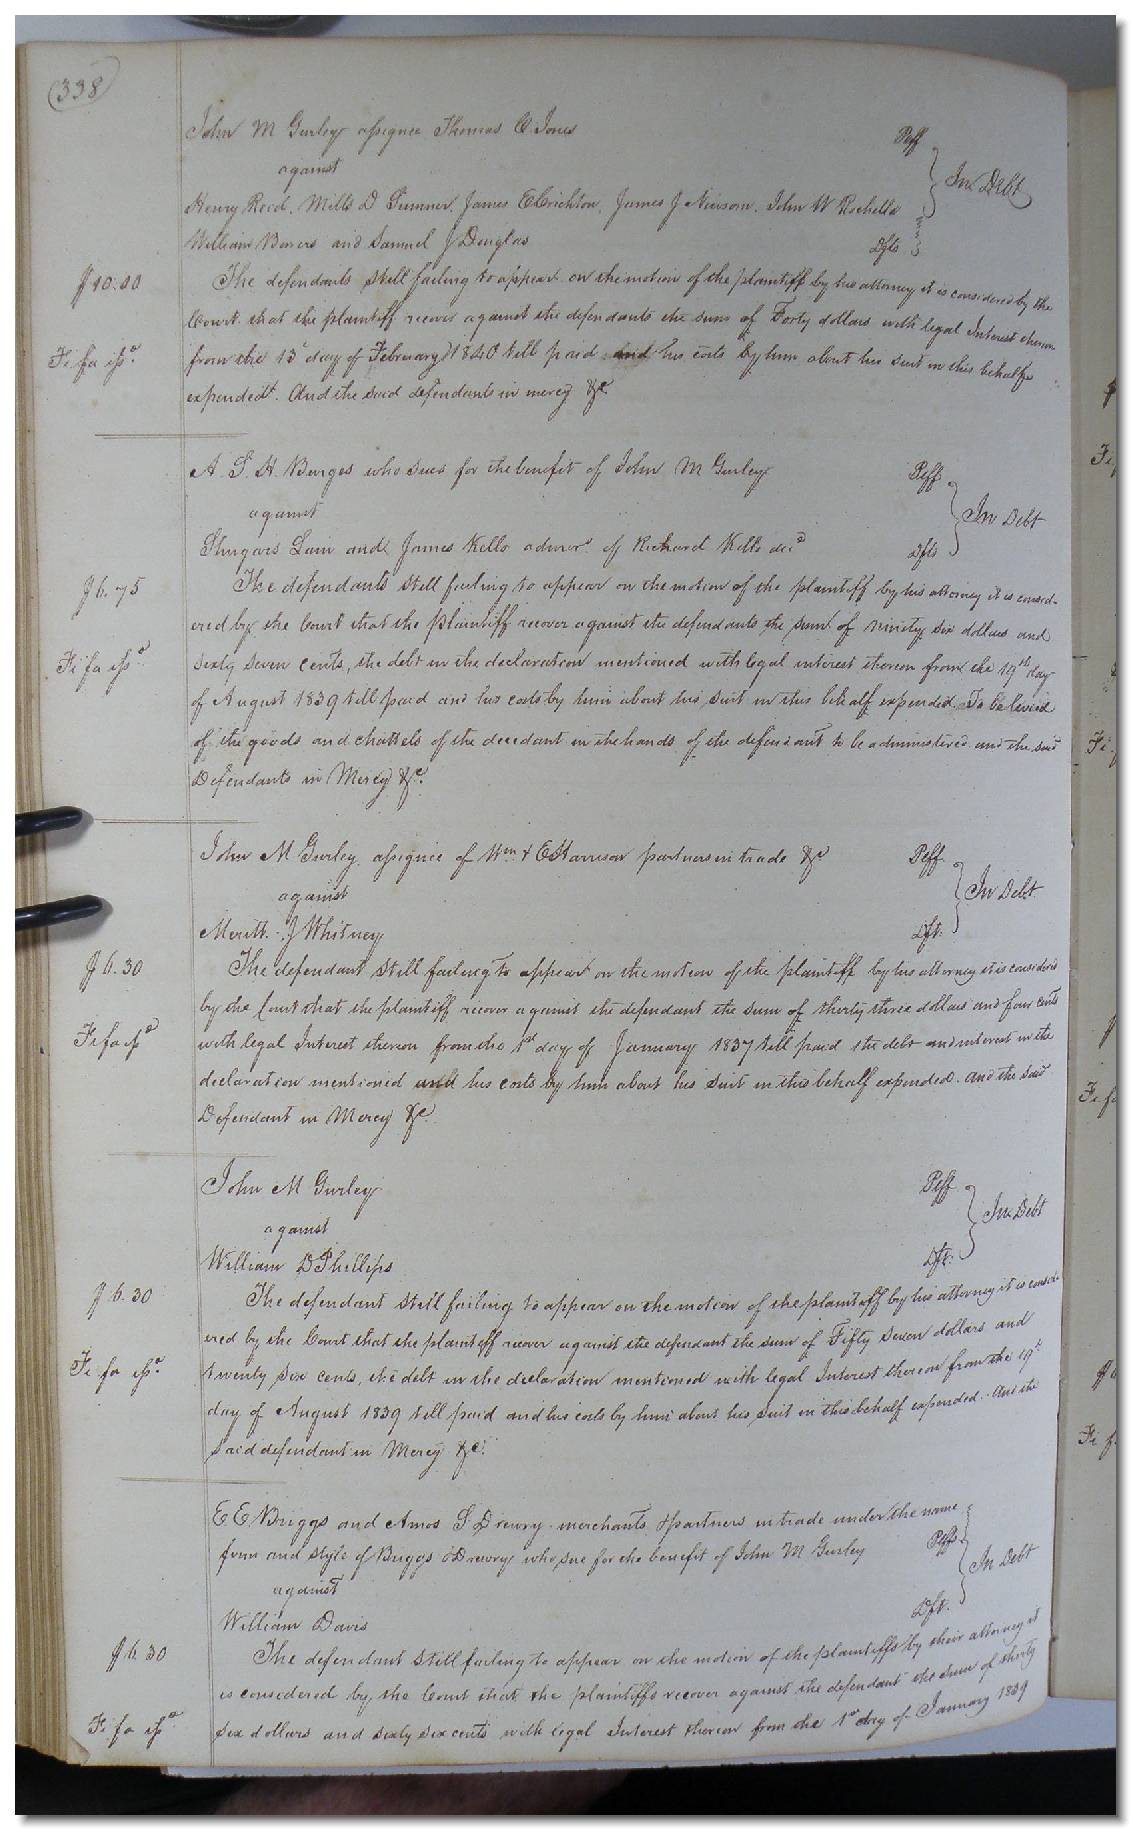 338
John M Gurley assignee Thomas C Jones Plff
against In Debt
Henry Reed, Mills D Sumner, James E Crichton, James J Newsom, John W Rochelle
William Bowers and Samuel J Douglas Dfts
$10.00 The defendants still failing to appear on the motion of the plaintiff by his attorney it is considered by the
Court that the plaintiff recover against the defendants the sum of Forty dollars with legal Interest thereon
Fi fa issd from the 13 day of February 1840 till paid and his costs by him about his suit in this behalf
expended. And the said defendants in mercy &c
A. S. H. Burges who sues for the benefit of John M Gurley Plff
against In Debt
Lain and James Kello admors of Richard Kello decd Dfts
$6.75 The defendants still failing to appear on the motion of the plaintiff by his attorney it is consid-
ered by the Court that the plaintiff recover against the defendants the sum of ninety six dollars and
Fi fa issd sixty seven cents, the debt in the declaration mentioned with legal interest thereon from the 19th day
of August 1839 till paid and his costs by him about his suit in this behalf expended. To be levied
of the goods and chattels of the decedant in the hands of the defendant to be administered and the said
Defendants in Mercy &c.
John M Gurley assignee of Wm & E Harrison partners in trade &c Plff
against In Debt
Meritt J Whitney Dft.
$6.30 The defendant still failing to appear on the motion of the plaintiff by his attorney it is considered
by the Court that the plaintiff recover against the defendant the sum of thirty three dollars and four cents
Fi fa issd with legal Interest thereon from the 1st day of January 1837 till paid the debt and interest in the
declaration mentioned and his costs by him about his suit in this behalf expended. and the said
Defendant in Mercy &c.
John M Gurley Plff
against In Debt
William D Phillips Dft.
$6.30 The defendant still failing to appear on the motion of the plaintiff by his attorney it is consid-
ered by the Court that the plaintiff recover against the defendant the sum of Fifty seven dollars and
Fi fa issd twenty six cents, the debt in the declaration mentioned with legal Interest thereon from the 19th
day of August 1839 till paid and his costs by him about his suit in this behalf expended. And the
said defendant in Mercy &c.
E E Briggs and Amos S Drewry merchants & partners in trade under the name
firm and style of Briggs & Drewry who sue for the benefit of John M Gurley Plffs
against In Debt
William Davis Dft.
$6.30 The defendant still failing to appear on the motion of the plaintiffs by their attorney it
is considered by the Court that the plaintiffs recover against the defendant the sum of thirty
Fi fa issd six dollars and sixty six cents with legal Interest thereon from the 1st day of January 1839